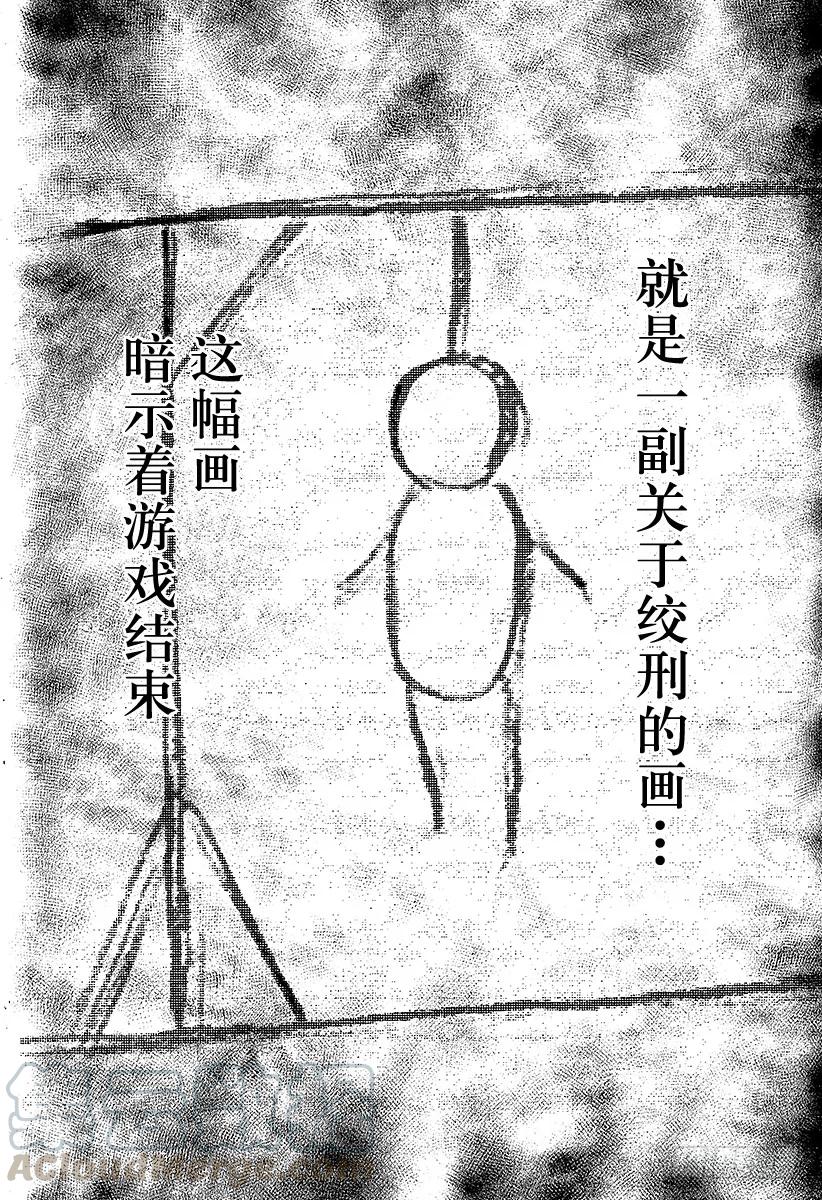 就是一副关于绞刑的画…
这幅画
暗示着游戏结束
AcloudMerge.com